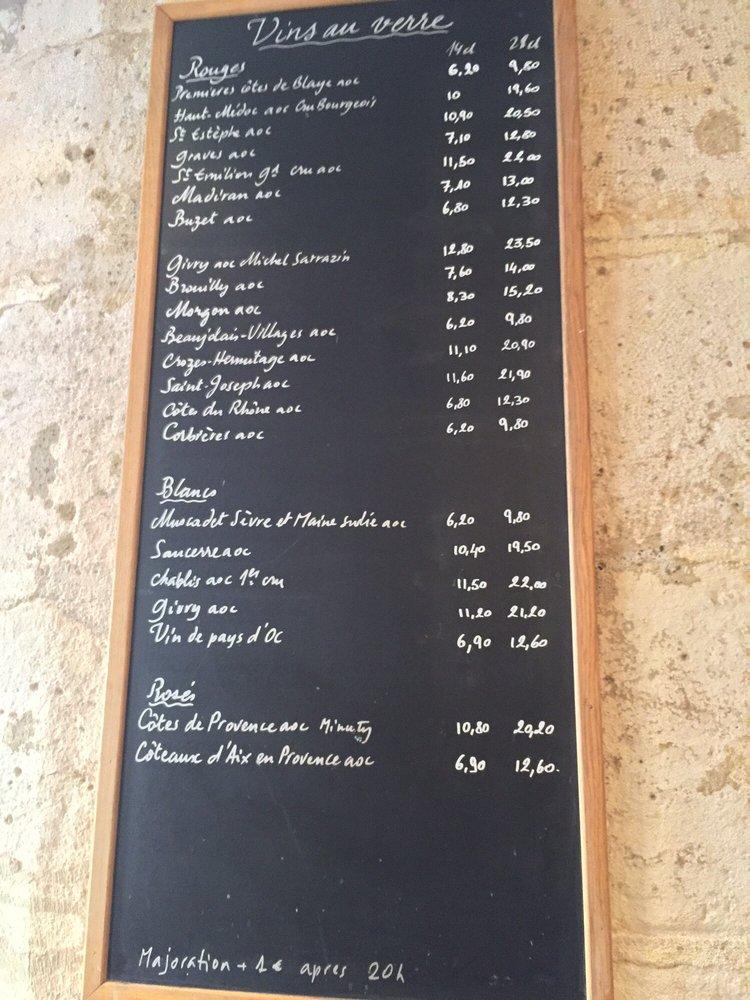 Vins au verre
14cl 28cl
Rouges
Premières côtes de Blaye aoc 6,20 9,80
Haut-Médoc aoc Cru Bourgeois 10 19,60
St Estèphe aoc 10,90 20,50
Graves aoc 7,10 12,80
St Emilion gd cru aoc 11,50 22,00
Madiran aoc 7,10 13,00
Buzet aoc 6,80 12,30
Givry aoc Michel Sarrazin 12,80 23,50
Brouilly aoc 7,60 14,00
Morgon aoc 8,30 15,20
Beaujolais-Villages aoc 6,20 9,80
Crozes-Hermitage aoc 11,10 20,90
Saint-Joseph aoc 11,60 21,90
Côtes du Rhône aoc 6,80 12,30
Corbières aoc 6,20 9,80
Blancs
Muscadet Sèvre et Maine s/lie aoc 6,20 9,80
Sancerre aoc 10,40 19,50
Chablis aoc 1er cru 11,50 22,00
Givry aoc 11,20 21,20
Vin de pays d'OC 6,90 12,60
Rosés
Côtes de Provence aoc Minuty 10,80 20,20
Côteaux d'Aix en Provence aoc 6,90 12,60.
Majoration + 1€ apres 20h